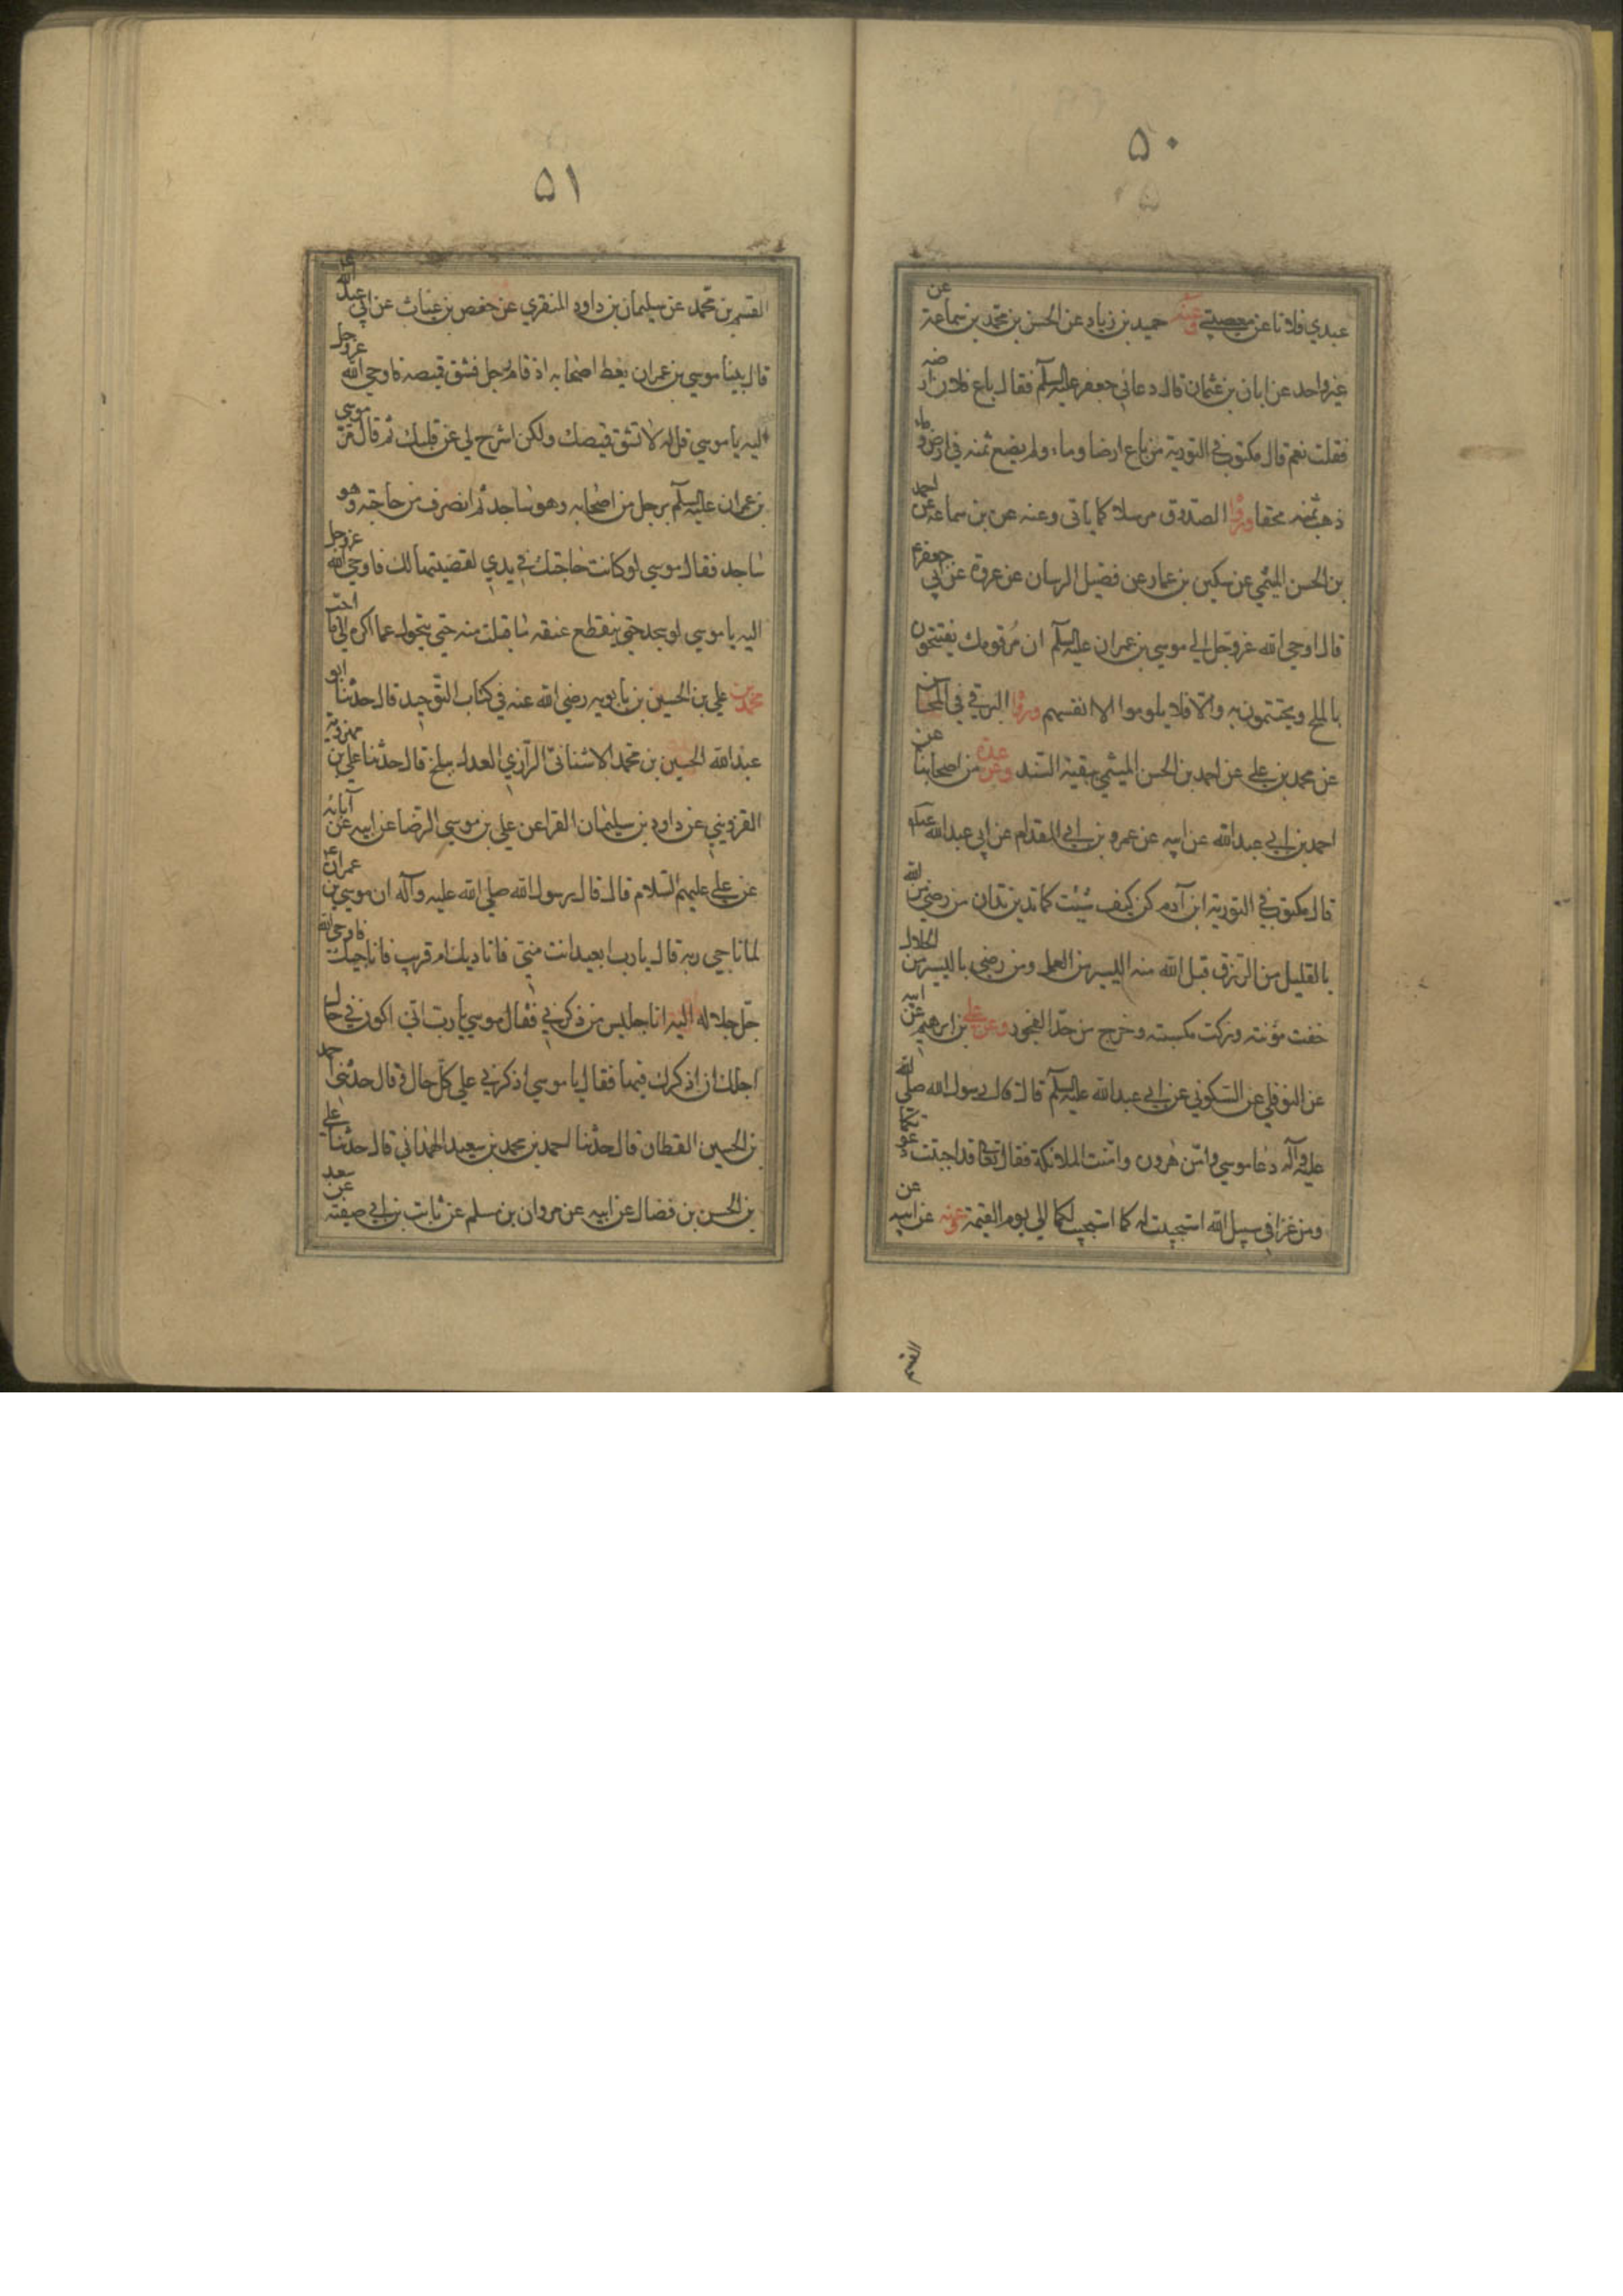 ۵۰
عبدي فلانا عن معصيتي وعنه حميد بن زياد عن الحسن بن محمد بن سماعة عن
غير واحد عن ابان بن عثمان قال دعاني جعفر عليه السلم فقال باع فلان ارضه
فقلت نعم قال مكتوب في التورية من باع ارضا وماء ولم يضع ثمنه في ارض وماء
ذهب ثمنه محقا ورواه الصدوق مرسلا كما ياتي وعنه عن بن سماعة عن احمد
بن الحسن الميثمي عن سكين بن عمار عن فضيل الرسان عن عروة عن ابي جعفر ع
قال اوحى الله عز وجل الي موسي بن عمران عليه السلم ان مر قومك يفتتحون
بالملح ويختتمون به والا فلا يلوموا الا انفسهم ورواه البرقي في المحاسن
عن محمد بن علي عن احمد بن الحسن الميثمي ببقية السند وعن عدة من اصحابنا عن
احمد بن ابي عبدالله عن ابيه عن عمرو بن ابي المقدام عن ابي عبدالله
قال مكتوب في التورية ابن آدم كن كيف شئت كما تدين تدان من رضي من الله
بالقليل من الرزق قبل الله منه اليسير من العمل ومن رضي باليسير من الحلال
خفت مؤنته وزكت مكسبته وخرج من حد الفجور وعن علي بن ابرهيم عن ابيه
عن النوفلي عن السكوني عن ابي عبدالله عليه السلم قال قال رسول الله صلى الله
عليه وآله دعا موسي وامن هرون وامنت الملائكة فقال تعالى قد اجيبت دعوتكما
ومن غزا في سبيل الله استجيبت له كما استجيب لكما الي يوم القيمة وعنه عن ابيه عن
القسم
۵۱
القسم بن محمد عن سليمان بن داود المنقري عن حفص بن غياث عن ابي عبدالله ع
قال بينا موسي بن عمران يعظ اصحابه اذ قام رجل فشق قميصه فاوحي الله عز وجل
اليه يا موسي قل له لا تشق قميصك ولكن اشرح لي عن قلبك ثم قال مر موسي
بن عمران عليه السلم برجل من اصحابه وهو ساجد ثم انصرف من حاجته وهو
ساجد فقال موسي لو كانت حاجتك في يدي لقضيتها لك فاوحي الله عز وجل
اليه يا موسي لو سجد حتي ينقطع عنقه ما قبلت منه حتي يتحول عما اكره الي ما احب
محمد بن علي بن الحسين بن بابويه رضي الله عنه في كتاب التوحيد قال حدثنا ابو
عبدالله الحسين بن محمد الاشناني الرازي العدل ببلخ قال حدثنا علي بن مهرويه
القزويني عن داود بن سليمان الفرا عن علي بن موسي الرضا عن ابيه عن آبائه
عن علي عليهم السلام قال قال رسول الله صلي الله عليه وآله ان موسي بن عمران ع
لما ناجي ربه قال يا رب ابعيد انت مني فاناديك ام قريب فاناجيك فاوحي الله
جل جلاله اليه انا جليس من ذكرني فقال موسي يا رب اني اكون في حال
اجلك ان اذكرك فيها فقال يا موسي اذكرني علي كل حال ق قال حدثني احمد
بن الحسين القطان قال حدثنا احمد بن محمد بن سعيد الهمداني قال حدثنا علي
بن الحسن بن فضال عن ابيه عن مروان بن مسلم عن ثابت بن ابي صفية عن سعد